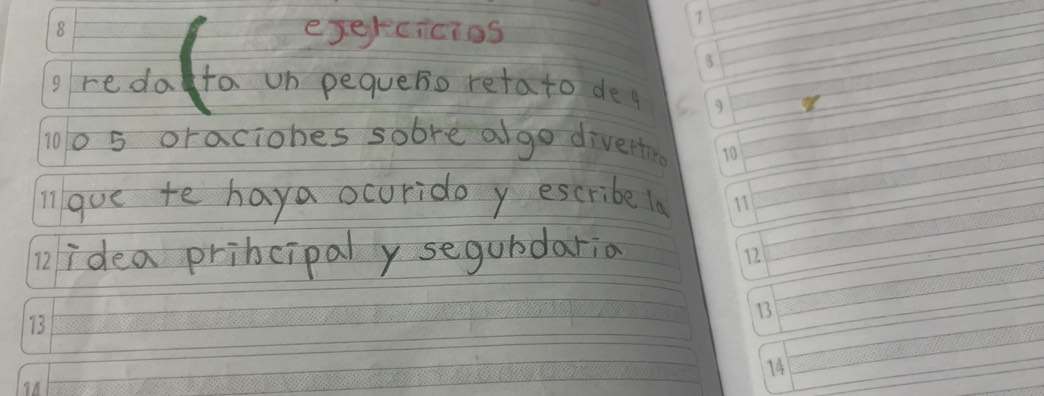 8 ejercicios
9 redacta un pequeño retato de 4
10 o 5 oraciones sobre algo divertiro
11 que te haya ocurido y escribe la
12 idea principal y segundaria
13
14
7
8
9
10
11
12
13
14